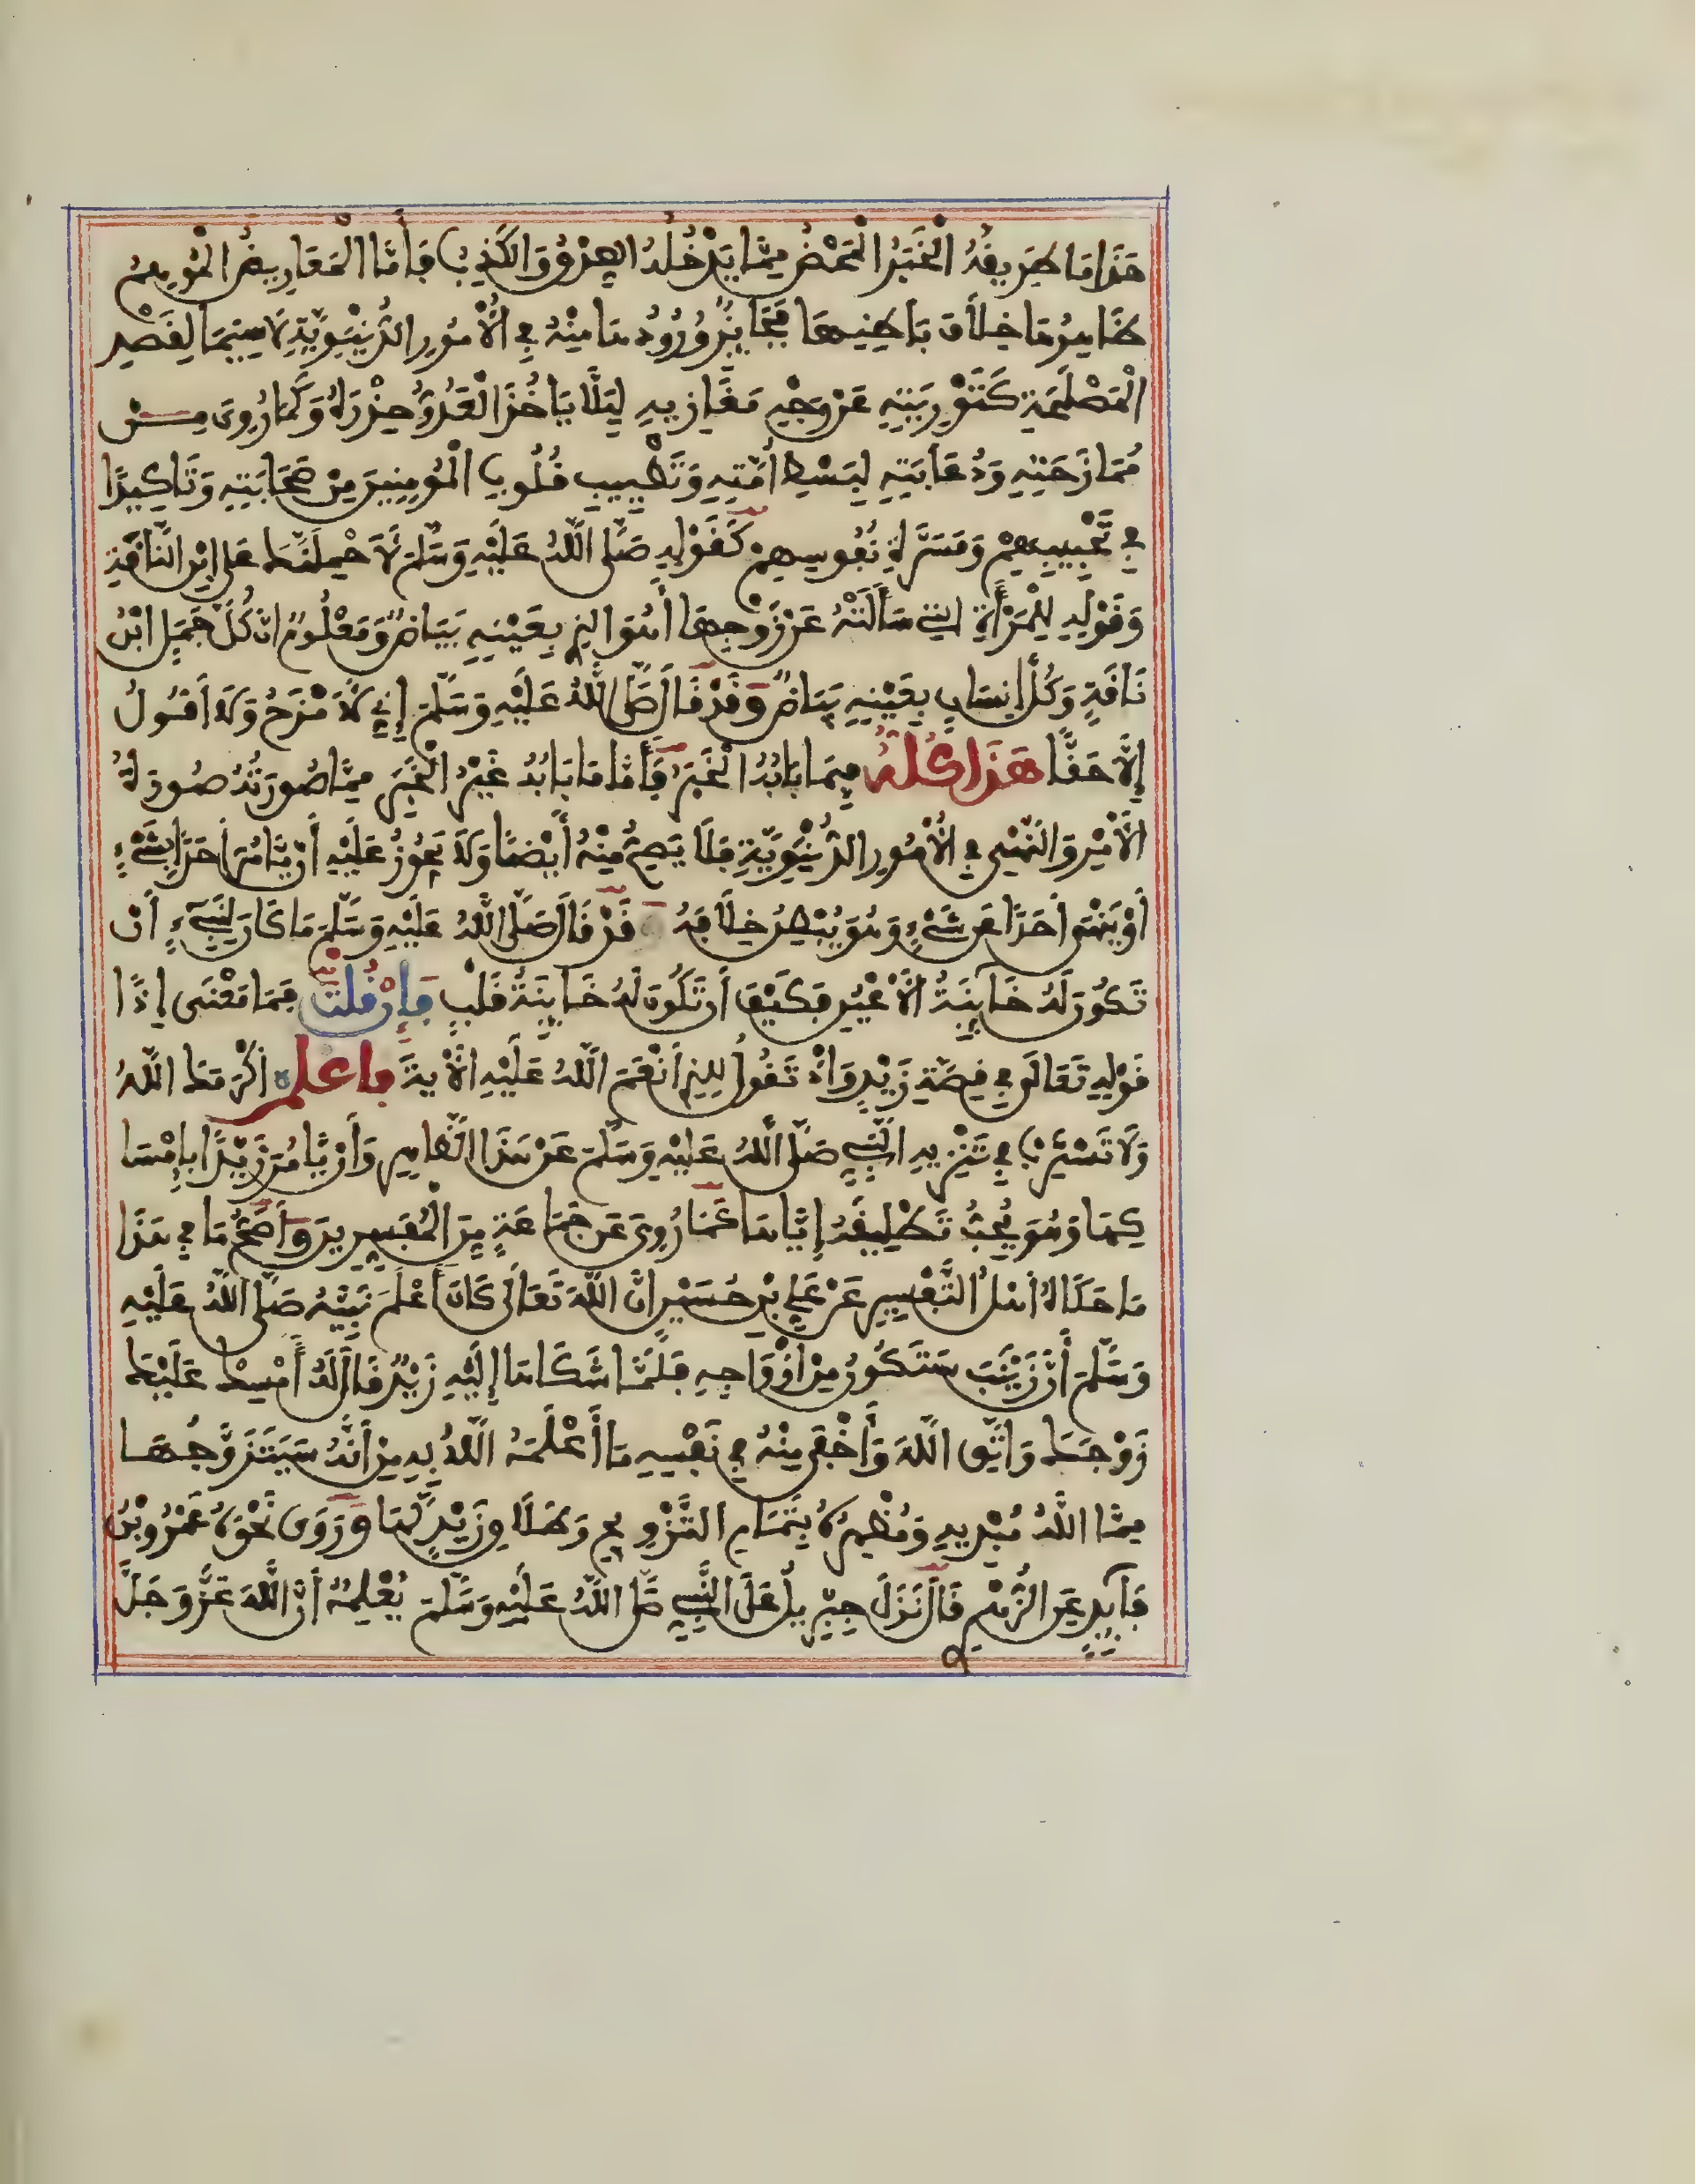 هَذَا مَا طَرِيقُهُ الْخَبَرُ الْمَحْضُ مِمَّا يَدْخُلُهُ الصِّدْقُ وَالْكَذِبُ فَأَمَّا الْمَعَارِيضُ الْمُوهِمُ
ظَاهِرُهَا خِلَافَ بَاطِنِهَا فَجَائِزٌ وُرُودُهَا مِنْهُ فِي الْأُمُورِ الدُّنْيَوِيَّةِ لَا سِيَّمَا لِقَصْدِ
الْمَصْلَحَةِ كَتَوْرِيَتِهِ عَنْ وَجْهِ مَغَازِيهِ لِيَلَّا يَأْخُذَ الْعَدُوُّ حِذْرَهُ وَكَمَا رُوِيَ مِنْ
مُمَازَحَتِهِ وَدُعَابَتِهِ لِبَسْطِ أُمَّتِهِ وَتَطْيِيبِ قُلُوبِ الْمُومِنِينَ مِنْ صَحَابَتِهِ وَتَاكِيدًا
فِي تَحْبِيبِهِمْ وَمَسَرَّةِ نُفُوسِهِمْ كَقَوْلِهِ صَلَّى اللَّهُ عَلَيْهِ وَسَلَّمَ لَأَحْمِلَنَّكَ عَلَى ابْنِ النَّاقَةِ
وَقَوْلِهِ لِلْمَرْأَةِ الَّتِي سَأَلَتْهُ عَنْ زَوْجِهَا أَهُوَ الَّذِي بِعَيْنِهِ بَيَاضٌ وَمَعْلُومٌ أَنَّ كُلَّ جَمَلٍ ابْنُ
نَاقَةٍ وَكُلُّ إِنسَانٍ بِعَيْنِهِ بَيَاضٌ وَقَدْ قَالَ صَلَّى اللَّهُ عَلَيْهِ وَسَلَّمَ إِنِّي لَأَمْزَحُ وَلَا أَقُولُ
إِلَّا حَقًّا هَذَا كُلُّهُ فِيمَا بَابُهُ الْخَبَرُ فَأَمَّا مَا بَابُهُ غَيْرُ الْخَبَرِ مِمَّا صُورَتُهُ صُورَةُ
الْأَمْرِ وَالنَّهْيِ فِي الْأُمُورِ الدُّنْيَوِيَّةِ فَلَا يَصِحُّ مِنْهُ أَيْضًا وَلَا يَجُوزُ عَلَيْهِ أَنْ يَّامُرَ أَحَدًا بِشَيْءٍ
أَوْ يَنْهَى أَحَدًا عَنْ شَيْءٍ وَهُوَ يُبْطِنُ خِلَافَهُ وَقَدْ قَالَ صَلَّى اللَّهُ عَلَيْهِ وَسَلَّمَ مَا كَانَ لِنَبِيءٍ أَنْ
تَكُونَ لَهُ خَائِنَةُ الْأَعْيُنِ فَكَيْفَ أَنْ تَكُونَ لَهُ خَائِنَةُ قَلْبٍ فَإِنْ قُلْتَ فَمَا مَعْنَى إِذًا
قَوْلِهِ تَعَالَى فِي قِصَّةِ زَيْدٍ وَإِذْ تَقُولُ لِلَّذِي أَنْعَمَ اللَّهُ عَلَيْهِ الْآيَةَ فَاعْلَمْ أَكْرَمَكَ اللَّهُ
وَلَا تَسْتَرِبْ فِي تَنْزِيهِ النَّبِيِّ صَلَّى اللَّهُ عَلَيْهِ وَسَلَّمَ عَنْ هَذَا الظَّاهِرِ وَأَنْ يَّامُرَ زَيْدًا بِإِمْسَا
كِهَا وَهُوَ يُحِبُّ تَطْلِيقَهُ إِيَّاهَا كَمَا رُوِيَ عَنْ جَمَاعَةٍ مِنَ الْمُفَسِّرِينَ وَأَصَحُّ مَا فِي هَذَا
مَا حَكَاهُ أَهْلُ التَّفْسِيرِ عَنْ عَلِيِّ بْنِ حُسَيْنٍ أَنَّ اللَّهَ تَعَالَى كَانَ أَعْلَمَ نَبِيَّهُ صَلَّى اللَّهُ عَلَيْهِ
وَسَلَّمَ أَنَّ زَيْنَبَ سَتَكُونُ مِنْ أَزْوَاجِهِ فَلَمَّا شَكَاهَا إِلَيْهِ زَيْدٌ قَالَ لَهُ أَمْسِكْ عَلَيْكَ
زَوْجَكَ وَاتَّقِ اللَّهَ وَأَخْفَى مِنْهُ فِي نَفْسِهِ مَا أَعْلَمَهُ اللَّهُ بِهِ مِنْ أَنَّهُ سَيَتَزَوَّجُهَا
مِمَّا اللَّهُ مُبْدِيهِ وَمُظْهِرُهُ بِتَمَامِ التَّزْوِيجِ وَطَلَاقِ زَيْدٍ لَهَا وَرَوَى نَحْوَهُ عَمْرُو بْنُ
فَائِدٍ عَنِ الزُّهْرِيِّ قَالَ نَزَلَ جِبْرِيلُ عَلَى النَّبِيِّ صَلَّى اللَّهُ عَلَيْهِ وَسَلَّمَ يُعْلِمُهُ أَنَّ اللَّهَ عَزَّ وَجَلَّ